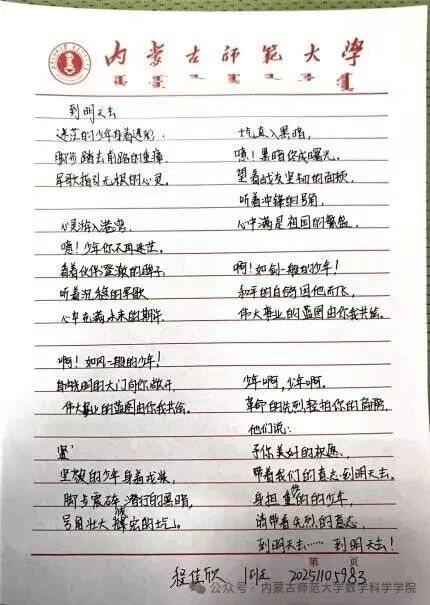 内蒙古师范大学
到明天去
迷茫的少年身着迷彩，
脚步踏去前路的重障
军歌指引无根的心灵。
心灵游入港湾
噫！少年你不再迷茫。
看着伙伴坚毅的
听着沉稳的军歌
心中充满未来的期许
啊！如风一般的少年！
的大门向你敞开，
伟大事业的蓝图由你我共绘。
坚毅的少年身着戎装
脚步震碎潜行的黑暗
号角壮大辉宏的
坑道入黑暗，
噫！黑暗你成曙光。
望着战友坚韧的面颊
听着冲锋的号角
心中满是祖国的繁盛
啊！如剑一般的少年！
和平的白鸽因他而飞，
伟大事业的蓝图由你我共绘。
少年啊，少年啊。
革命的先烈轻拍你的肩膀
他们说：
予你美好的祝愿，
带着我们的意志到明天去。
身担重任的少年，
请带着先烈的意志
到明天去……到明天去！
第 页
程佳欣 20251105983
公众号·内蒙古师范大学数学科学学院